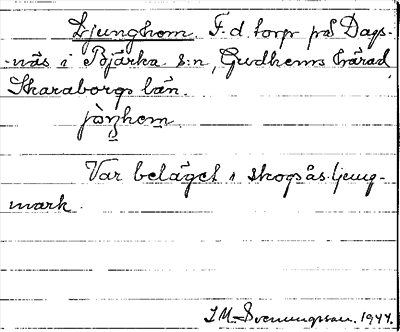 Ljunghem. F. d. torp på Dags-
-näs i Bjärka s:n, Gudhems härad,
Skaraborgs län.
jòŋhem.
Var beläget i skogsås-ljung-
mark.
J. M. Svenungsson. 1944.